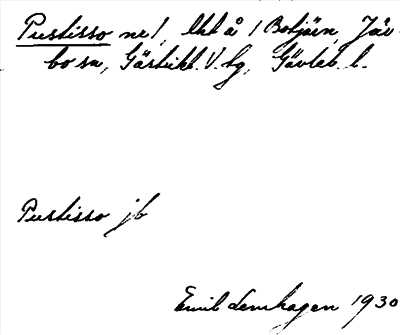 Pustisso nr 1, lht å 1 Botjärn, Jär-
bo sn, Gästrikl. V. tg, Gävleb. l.
Pustisso jb
Emil Lenhagen 1930